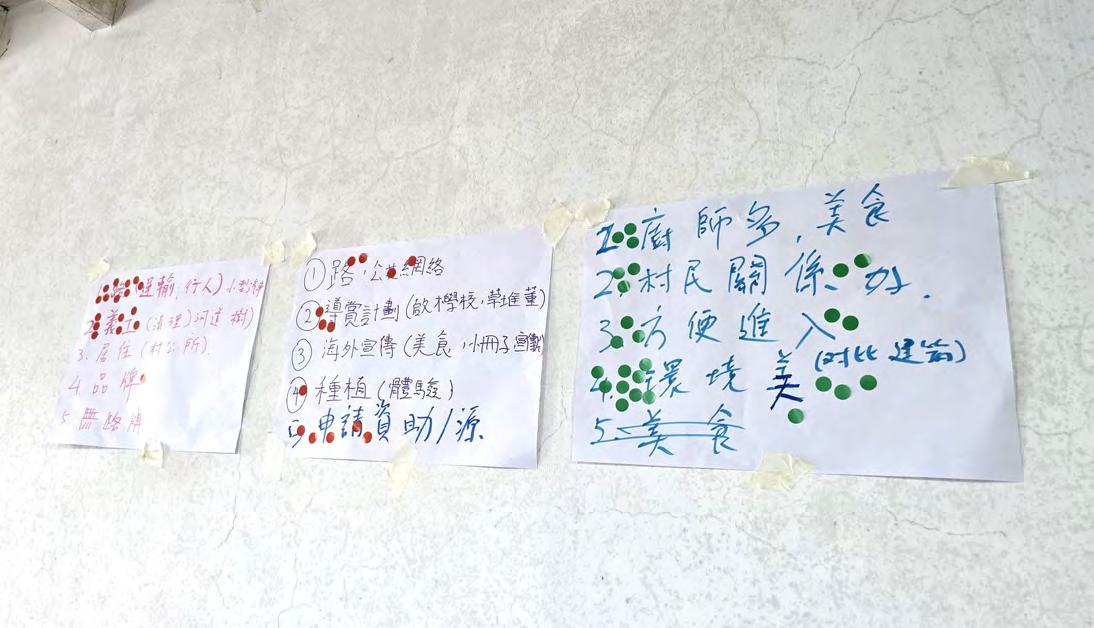 運輸,行人)
2.義工(清理)河道 樹)
3.居住(村公所)
4.品牌
5.無路牌
①路,公共網絡
②導賞計劃(啟 學校,
③海外宣傳(美食,小冊子
④種植(體驗)
5.申請資助/源
1.廚師多,美食
2.村民關係好.
3.方便進入
4.環境美(對比 建筑)
5.美食